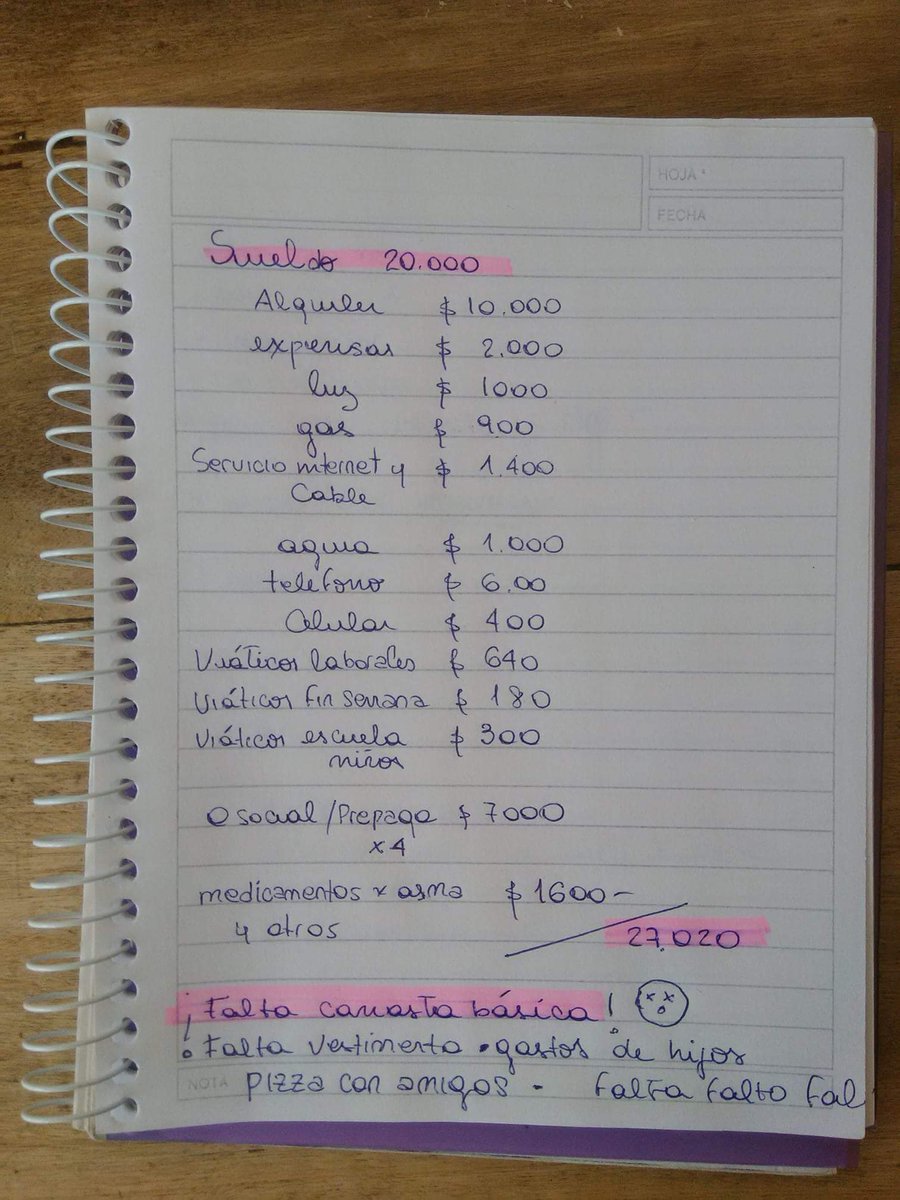 HOJA *
FECHA
Sueldo 20.000
Alquiler $ 10.000
expensas $ 2.000
luz $ 1000
gas $ 900
Servicio internet y $ 1.400
Cable
agua $ 1.000
teléfono $ 6.00
Celular $ 400
Viáticos laborales $ 640
Viáticos fin semana $ 180
Viáticos escuela $ 300
niños
O social/Prepaga $ 7000
x 4
medicamentos x asma $ 1600-
y otros
27.020
¡Falta canasta básica!
¡Falta vestimenta • gastos de hijos
NOTA pizza con amigos - Falta Falto Fal